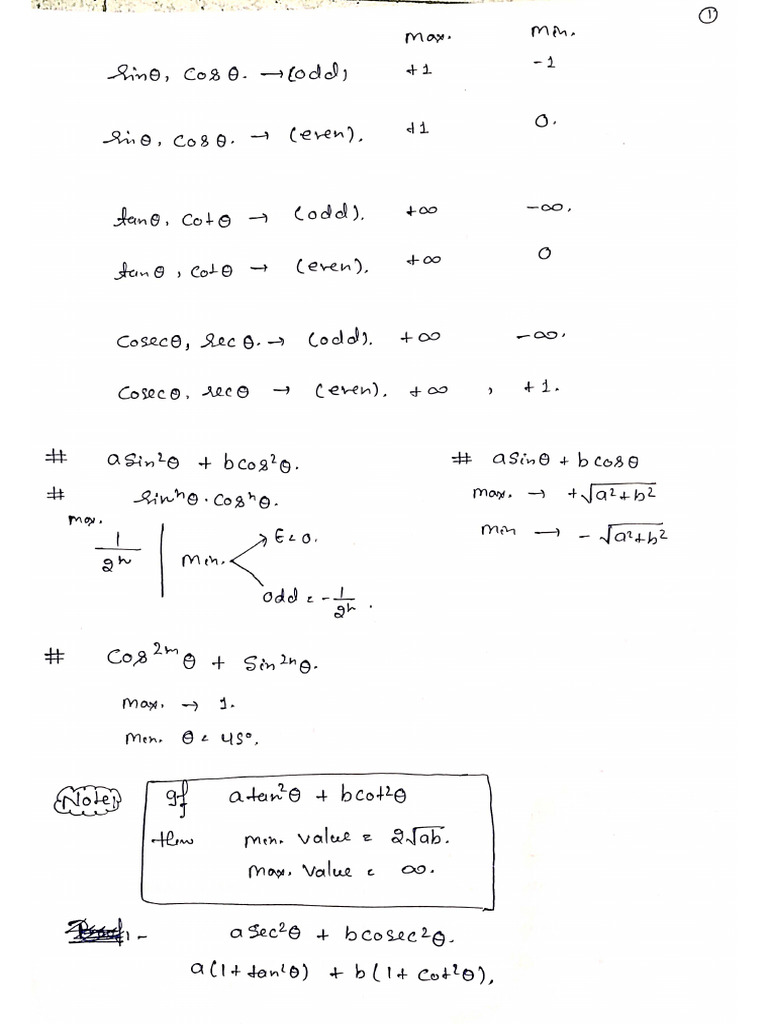 ①
max. min.
sinθ, cosθ. → (odd) +1 -1
sinθ, cosθ. → (even). +1 0.
tanθ, cotθ → (odd). +∞ -∞.
tanθ, cotθ → (even). +∞ 0
cosecθ, secθ. → (odd). +∞ -∞.
cosecθ, secθ → (even). +∞ , +1.
# a sin²θ + b cos²θ.
# sinⁿθ · cosⁿθ.
max.
1/2ⁿ | min. E = 0.
odd = -1/2ⁿ.
# a sinθ + b cosθ
max. → +√a²+b²
min → -√a²+b²
# cos²ᵐθ + sin²ⁿθ.
max. → 1.
min. θ = 45°.
Note: If a tan²θ + b cot²θ
then min. value = 2√ab.
max. value = ∞.
- a sec²θ + b cosec²θ.
a(1 + tan²θ) + b(1 + cot²θ),